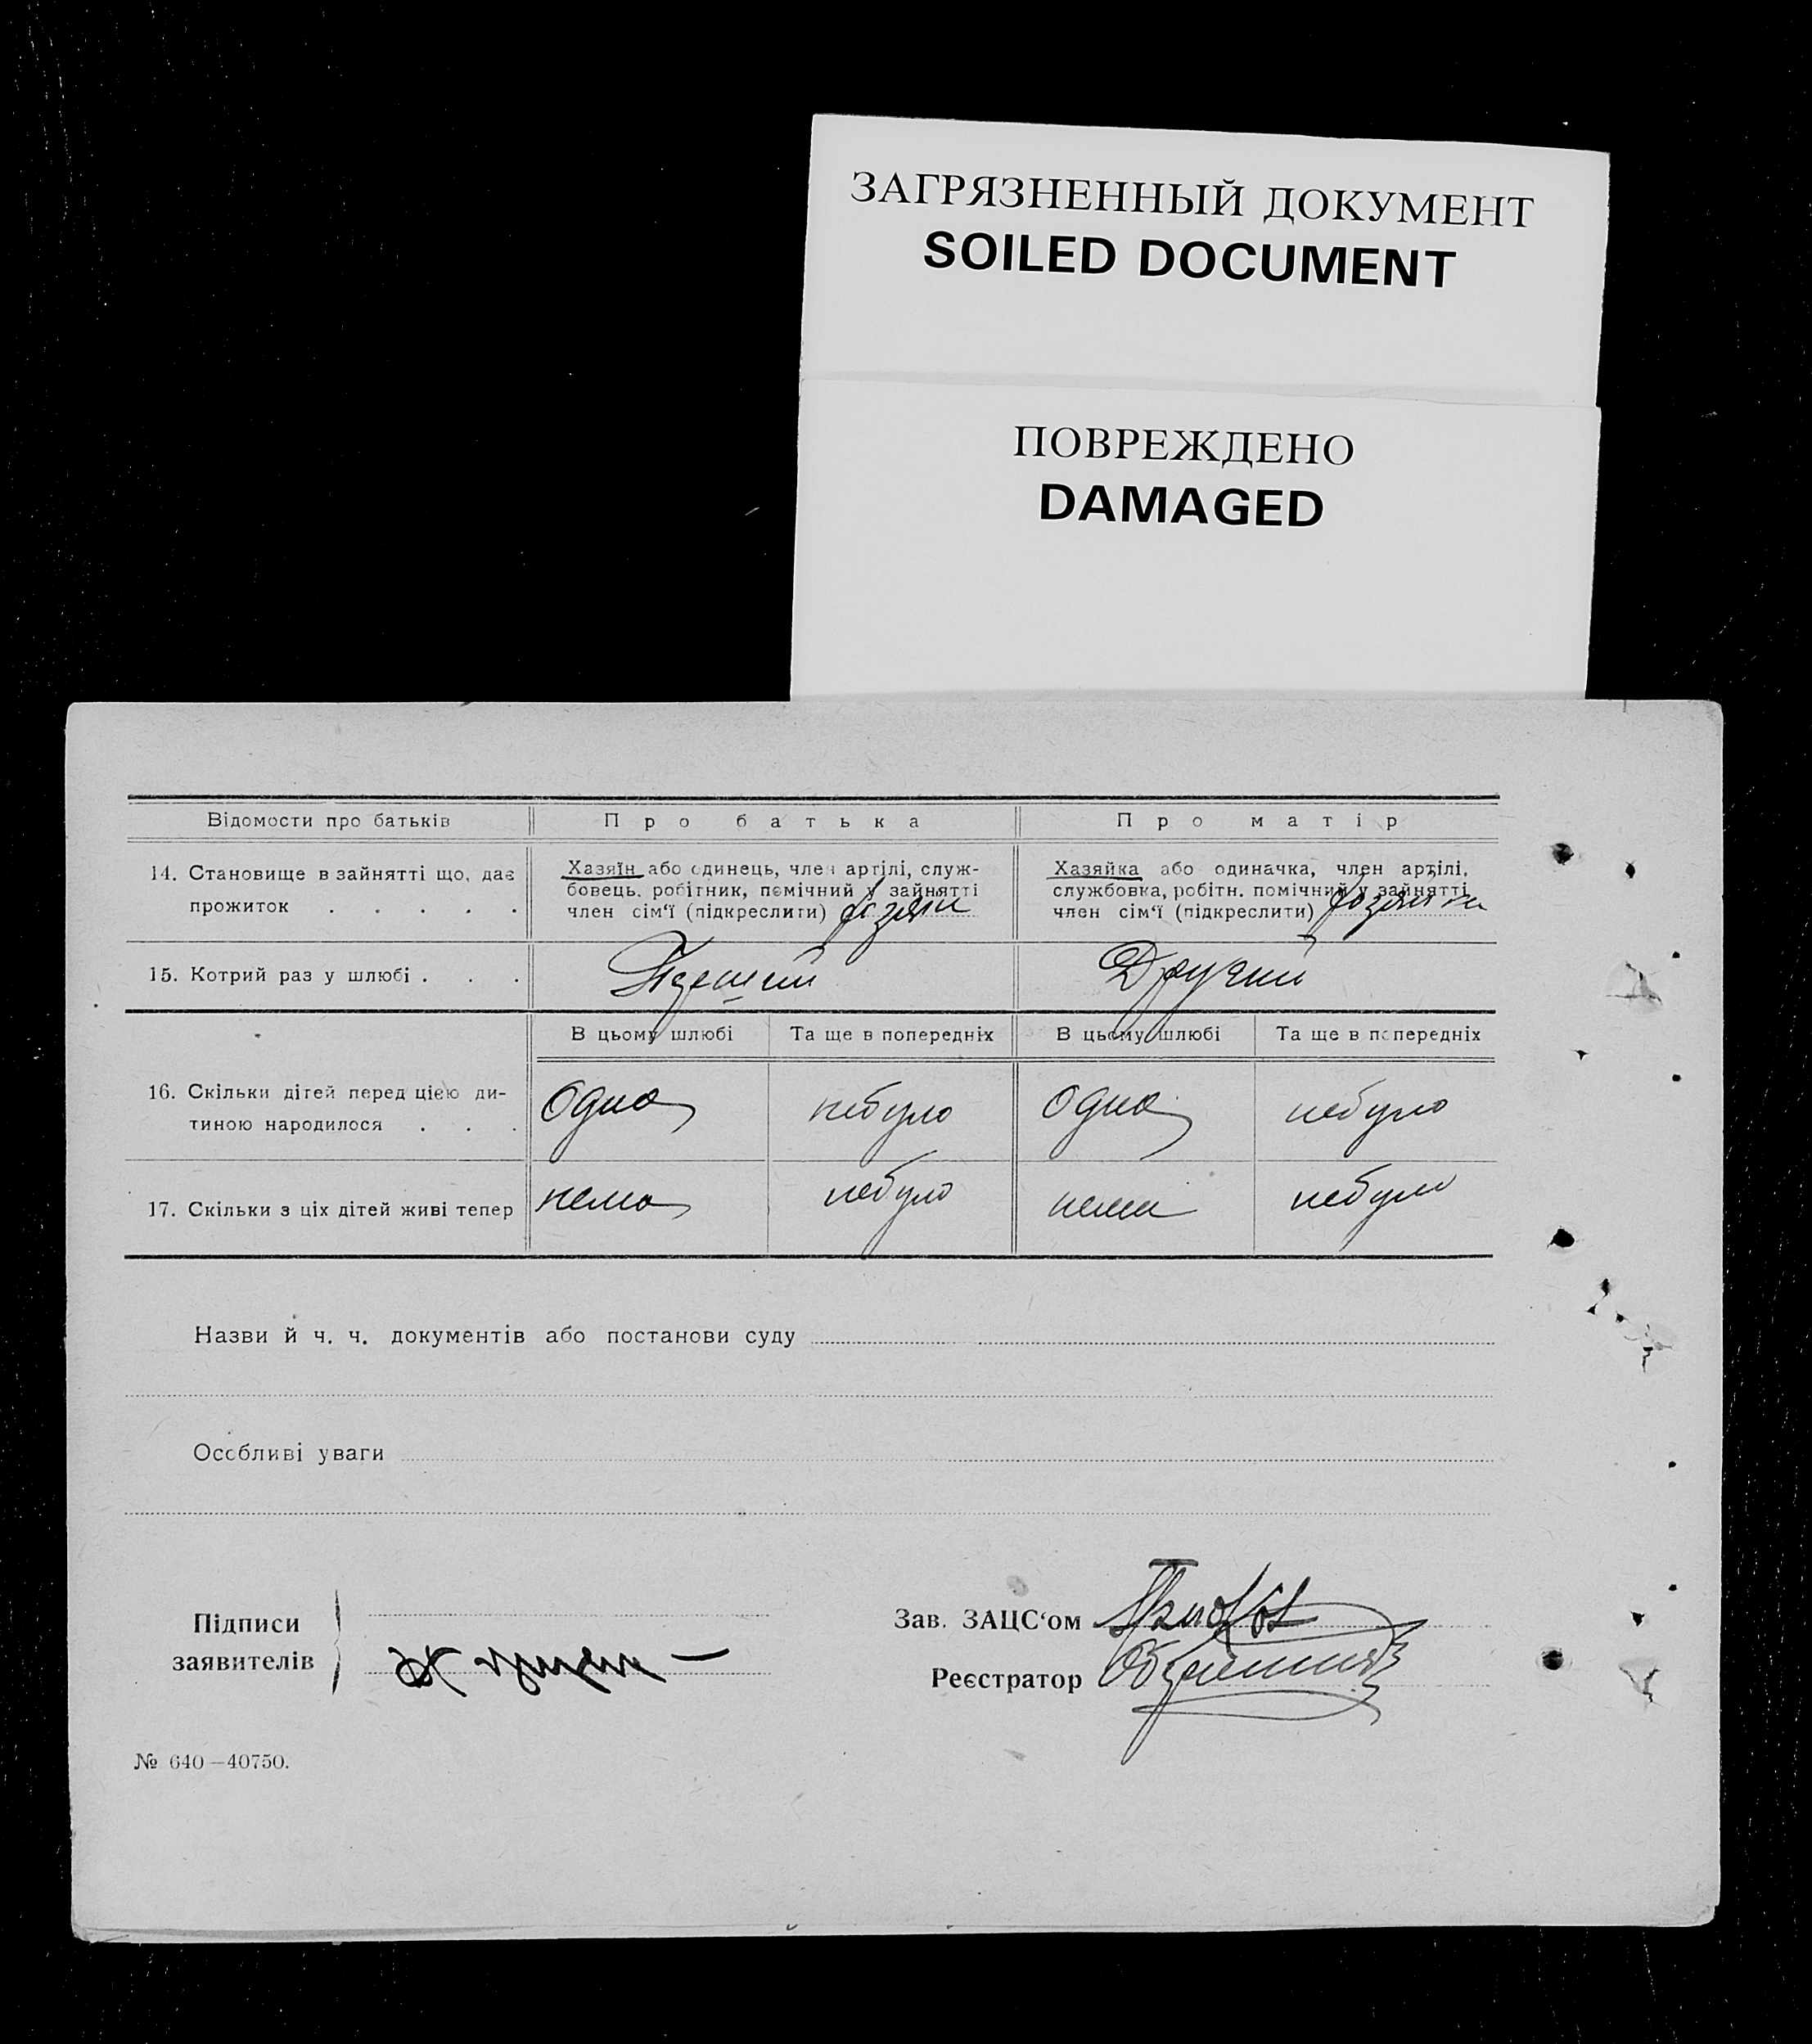 ЗАГРЯЗНЕННЫЙ ДОКУМЕНТ
SOILED DOCUMENT
ПОВРЕЖДЕНО
DAMAGED
Відомости про батьків Про батька Про матір
14. Становище в зайнятті що, дає
прожиток . . . . .
Хазяїн або одинець, член артілі, служ-
бовець, робітник, помічний у зайнятті
член сім‘ї (підкреслити) хазяін
Хазяйка або одиначка, член артілі,
службовка, робітн. помічний у зайнятті
член сім‘ї (підкреслити)
15. Котрий раз у шлюбі . . . Другий
В цьому шлюбі Та ще в попередніх В цьому шлюбі Та ще в попередніх
16. Скільки дітей перед цією ди-
тиною народилося . . .
Одна небуло Одна небуло
17. Скільки з ціх дітей живі тепер нема небуло нема небуло
Назви й ч. ч. документів або постанови суду
Особливі уваги
Підписи
заявителів
Зав. ЗАЦС‘ом
Реєстратор
№ 640—40750.